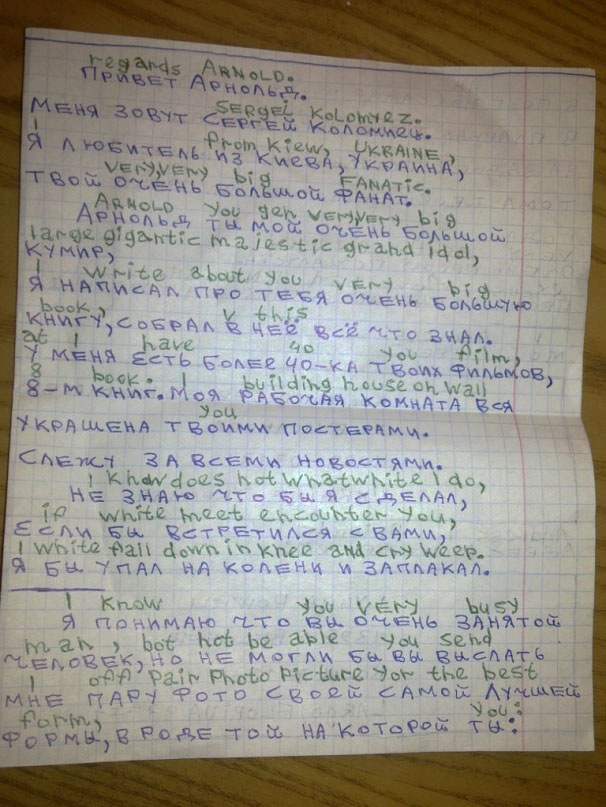 regards ARNOLD.
ПРИВЕТ АРНОЛЬД.
SERGEi KOLOMYEZ.
МЕНЯ ЗОВУТ СЕРГЕЙ КОЛОМИЕЦ.
I from Kiew, UKRAINE,
Я ЛЮБИТЕЛЬ ИЗ КИЕВА, УКРАИНА,
VERY,VERY big FANATIC.
ТВОЙ ОЧЕНЬ БОЛЬШОЙ ФАНАТ.
ARNOLD you gen VERY,VERY big
АРНОЛЬД ТЫ МОЙ ОЧЕНЬ БОЛЬШОЙ
large gigantic majestic grand idol,
КУМИР,
I write about you VERY big
Я НАПИСАЛ ПРО ТЕБЯ ОЧЕНЬ БОЛЬШУЮ
book, v this
КНИГУ, СОБРАЛ В НЕЁ ВСЁ ЧТО ЗНАЛ.
at I have 40 you film,
У МЕНЯ ЕСТЬ БОЛЕЕ 40-КА ТВОИХ ФИЛЬМОВ,
8 book. I building house on wall
8-М КНИГ. МОЯ РАБОЧАЯ КОМНАТА ВСЯ
you
УКРАШЕНА ТВОИМИ ПОСТЕРАМИ.
СЛЕЖУ ЗА ВСЕМИ НОВОСТЯМИ.
I know does not what white I do,
НЕ ЗНАЮ ЧТО БЫ Я СДЕЛАЛ,
if white meet encounter you,
ЕСЛИ БЫ ВСТРЕТИЛСЯ С ВАМИ,
I white fall down in knee and cry weep.
Я БЫ УПАЛ НА КОЛЕНИ И ЗАПЛАКАЛ.
I know you VERY busy
Я ПОНИМАЮ ЧТО ВЫ ОЧЕНЬ ЗАНЯТОЙ
man, bot not be able you send
ЧЕЛОВЕК, НО НЕ МОГЛИ БЫ ВЫ ВЫСЛАТЬ
I off pair photo picture yor the best
МНЕ ПАРУ ФОТО СВОЕЙ САМОЙ ЛУЧШЕЙ
form, you:
ФОРМЫ, В РОДЕ ТОЙ НА КОТОРОЙ ТЫ: